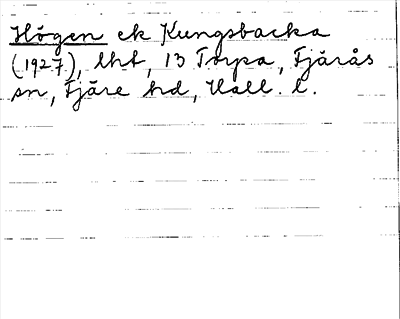 Högen ek Kungsbacka
(1927), lht, 13 Torpa, Fjärås
sn, Fjäre hd, Hall. l.